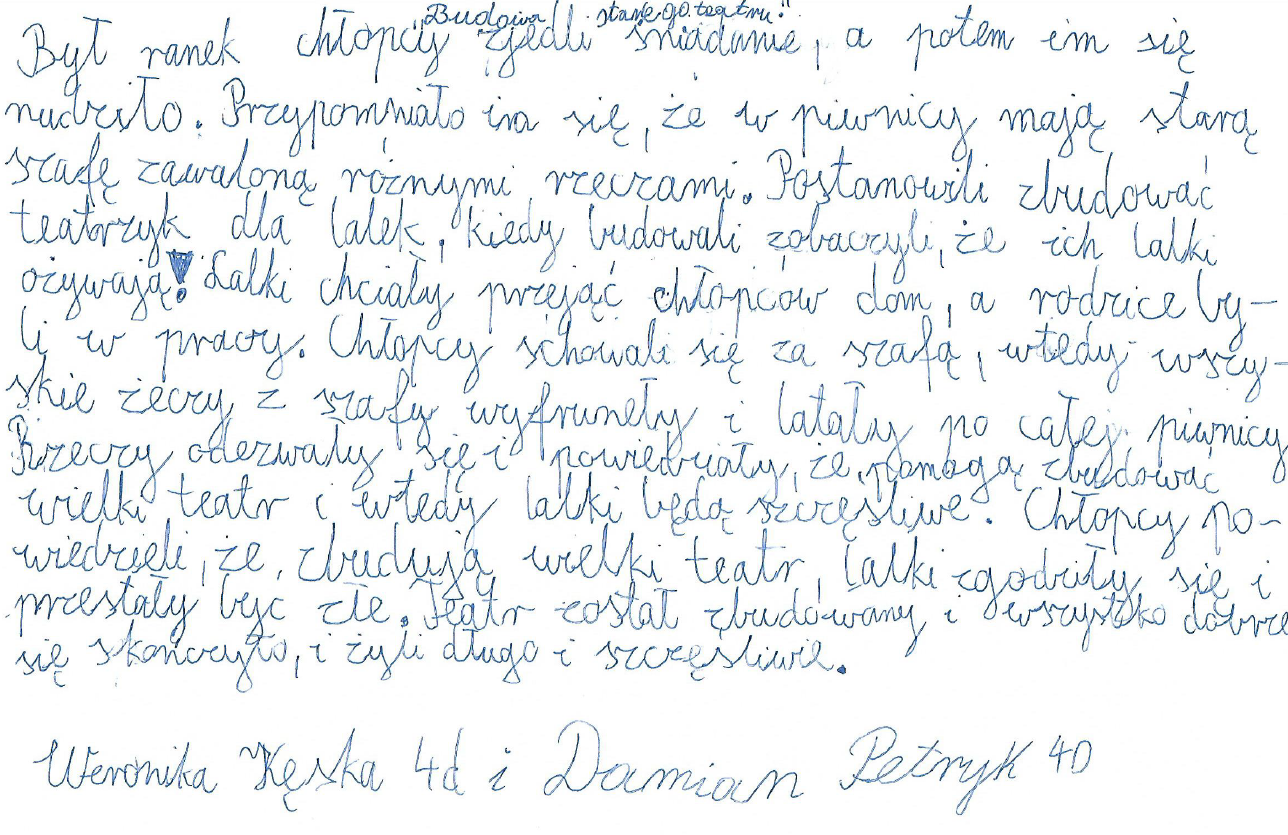 "Budowa starego teatru."
Był ranek chłopcy zjedli śniadanie, a potem im się
nudziło. Przypomniało im się, że w piwnicy mają starą
szafę zawaloną różnymi rzeczami. Postanowili zbudować
teatrzyk dla lalek, kiedy budowali zobaczyli, że ich lalki
ożywają! Lalki chciały przejąć chłopców dom, a rodzice by-
li w pracy. Chłopcy schowali się za szafą, wtedy wszy-
skie żeczy z szafy wyfrunęły i latały po całej piwnicy
Rzeczy odezwały się i powiedziały, że pomogą zbudować
wielki teatr i wtedy lalki będą szczęśliwe. Chłopcy po-
wiedzieli, że, zbudują wielki teatr, lalki zgodziły się i
przestały być złe. Teatr został zbudowany i wszystko dobrze
się skończyło, i żyli długo i szczęśliwie.
Weronika Kęska 4d i Damian Petryk 4D